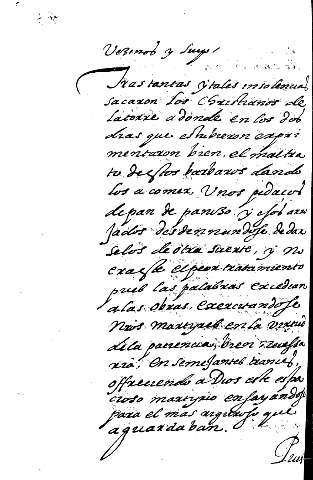 Vezinos y suyos
Tras tantas y tales insolencias
sacaron los Christianos de
la torre adonde en los dos
dias que estubieron expri
mentaron bien, el maltra
to de estos barbaros dando
los a comer, Unos pedaços
de pan de panizo, y esos arro
jados desdenmandose de dar
selos de otra suerte, y no
era este el peor tratamiento
pues las palabras excedian
a las obras, exercitandose
Nros martyres en la virtud
de la paciencia, bien necessa
ria, en semejantes trances,
offreciendo a Dios este espa
cioso martyrio ensayandose
para el mas riguroso que
aguardaban.